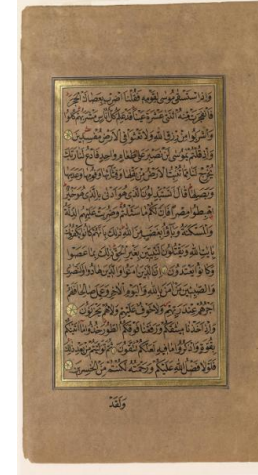 وَإِذِ اسْتَسْقَىٰ مُوسَىٰ لِقَوْمِهِ فَقُلْنَا اضْرِبْ بِعَصَاكَ الْحَجَرَ
فَانْفَجَرَتْ مِنْهُ اثْنَتَا عَشْرَةَ عَيْنًا قَدْ عَلِمَ كُلُّ أُنَاسٍ مَشْرَبَهُمْ كُلُوا
وَاشْرَبُوا مِنْ رِزْقِ اللَّهِ وَلَا تَعْثَوْا فِي الْأَرْضِ مُفْسِدِينَ
وَإِذْ قُلْتُمْ يَا مُوسَىٰ لَنْ نَصْبِرَ عَلَىٰ طَعَامٍ وَاحِدٍ فَادْعُ لَنَا رَبَّكَ
يُخْرِجْ لَنَا مِمَّا تُنْبِتُ الْأَرْضُ مِنْ بَقْلِهَا وَقِثَّائِهَا وَفُومِهَا وَعَدَسِهَا
وَبَصَلِهَا قَالَ أَتَسْتَبْدِلُونَ الَّذِي هُوَ أَدْنَىٰ بِالَّذِي هُوَ خَيْرٌ
اهْبِطُوا مِصْرًا فَإِنَّ لَكُمْ مَا سَأَلْتُمْ وَضُرِبَتْ عَلَيْهِمُ الذِّلَّةُ
وَالْمَسْكَنَةُ وَبَاءُوا بِغَضَبٍ مِنَ اللَّهِ ذَٰلِكَ بِأَنَّهُمْ كَانُوا يَكْفُرُونَ
بِآيَاتِ اللَّهِ وَيَقْتُلُونَ النَّبِيِّينَ بِغَيْرِ الْحَقِّ ذَٰلِكَ بِمَا عَصَوْا
وَكَانُوا يَعْتَدُونَ إِنَّ الَّذِينَ آمَنُوا وَالَّذِينَ هَادُوا وَالنَّصَارَىٰ
وَالصَّابِئِينَ مَنْ آمَنَ بِاللَّهِ وَالْيَوْمِ الْآخِرِ وَعَمِلَ صَالِحًا فَلَهُمْ
أَجْرُهُمْ عِنْدَ رَبِّهِمْ وَلَا خَوْفٌ عَلَيْهِمْ وَلَا هُمْ يَحْزَنُونَ
وَإِذْ أَخَذْنَا مِيثَاقَكُمْ وَرَفَعْنَا فَوْقَكُمُ الطُّورَ خُذُوا مَا آتَيْنَاكُمْ
بِقُوَّةٍ وَاذْكُرُوا مَا فِيهِ لَعَلَّكُمْ تَتَّقُونَ ثُمَّ تَوَلَّيْتُمْ مِنْ بَعْدِ ذَٰلِكَ
فَلَوْلَا فَضْلُ اللَّهِ عَلَيْكُمْ وَرَحْمَتُهُ لَكُنْتُمْ مِنَ الْخَاسِرِينَ
وَلَقَدْ